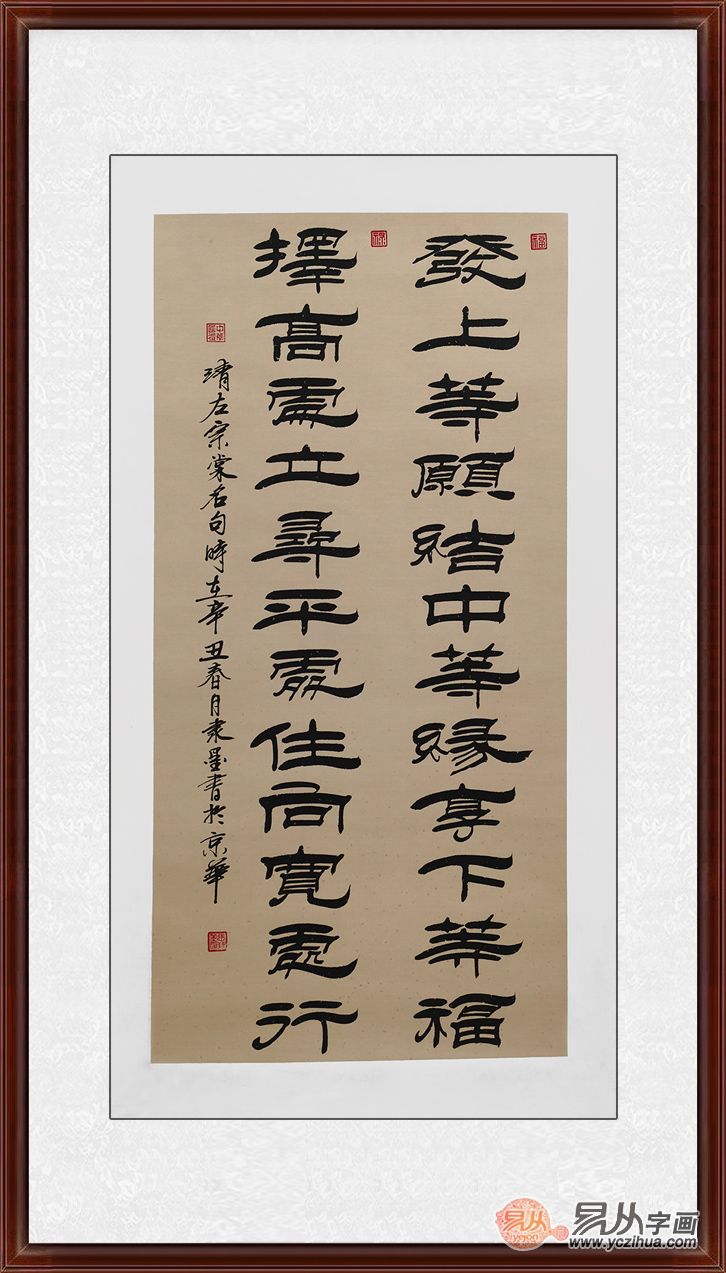 發上等願結中等緣享下等福
擇高處立尋平處住向寬處行
清左宗棠名句時在辛丑春月墨書於京華
易从
易从字画
www.yczihua.com